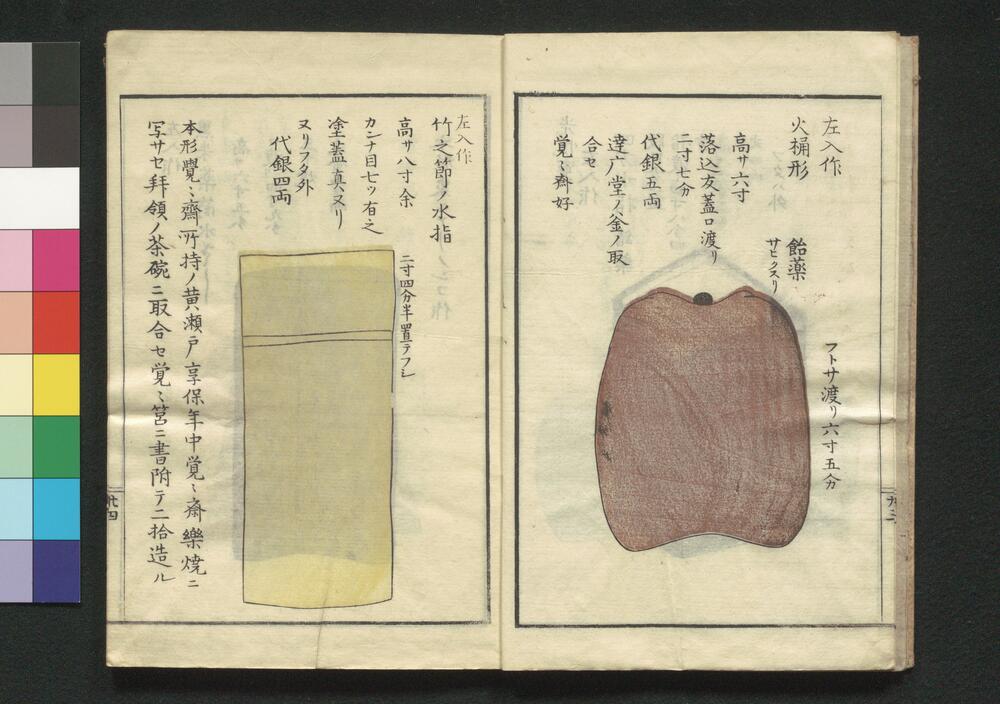 左入作
火桶形
高サ六寸
落込友蓋口渡リ
二寸七分
代銀五両
達广堂ノ釜ノ取
合セ
覚〻斎好
飴薬
サビクスリ
フトサ渡リ六寸五分
廿三
左入作
竹之節ノ水指
高サ八寸余
カンナ目七ツ有之
塗蓋真ヌリ
ヌリフタ外
代銀四両
二寸四分半置テフシ
本形覺〻齋所持ノ黄瀬戸享保年中覚〻斎樂焼ニ
写サセ拝領ノ茶碗ニ取合セ覚〻筥ニ書附テ二拾造ル
廿四